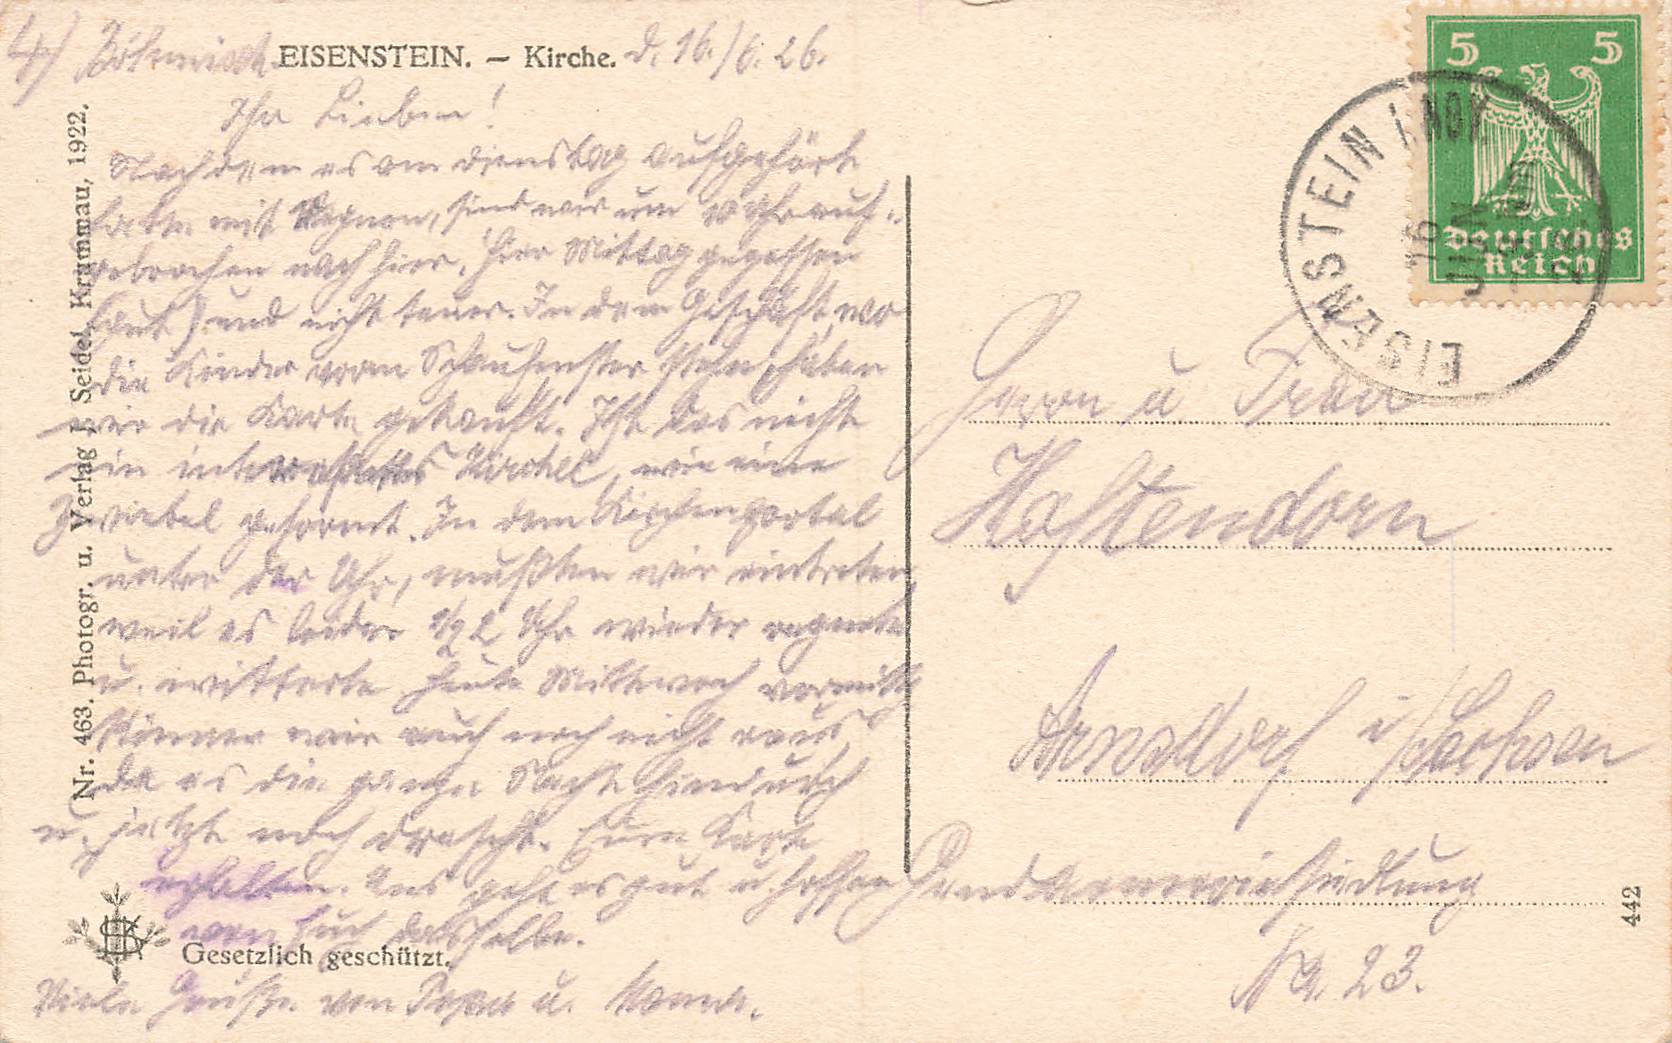 4) Böhmisch EISENSTEIN. — Kirche. d. 16./6. 26.
Ihr Lieben!
Nachdem es am dienstag aufgehört
hatte mit Regnen, sind wir um 10 Uhr auf-
gebrochen nach hier. Hier Mittag gegessen
(gut) und nicht teuer. In dem Geschäft, wo
die Kinder vorm Schaufenster stehn, haben
wir die Karte gekauft. Ist das nicht
ein interessantes Kirchel, wie eine
Zwiebel geformt. In dem Kirchenportal
unter der Uhr, mußten wir eintreten,
weil es leider 1/2 2 Uhr wieder regnete
u. witterte. Heute Mittwoch vormitt.
können wir auch noch nicht raus,
da es die ganze Nacht hindurch
u. jetzt noch drascht. Eure Karte
erhalten. Uns geht es gut u. hoffen
von Euch dasselbe.
Viele Grüße von Papa u. Mama.
Nr. 463. Photogr. u. Verlag J. Seidel, Krummau, 1922.
SK
Gesetzlich geschützt.
5 5
Deutsches
Reich
EISENSTEIN
16
JUN
Herrn u Frau
Haftendorn
Arnsdorf i/Sachsen
Handwerkersiedlung
No. 23.
442